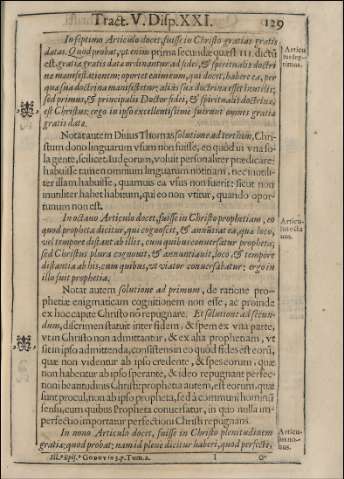 Tract. V. Disp. XXI. 129
In septimo Articulo docet, fuisse in Christo gratias gratis
datas. Quod probat, vt enim prima secundæ quæst. 111. dictũ
est: gratia gratis data ordinantur ad fidei, & spiritualis doctri
næ manifestationem: oportet enim eum, qui docet, habere ea, per
qua sua doctrina manifestetur; alias sua doctrina esset inutilis;
sed primus, & principalis Doctor fidei, & spiritualis doctrinæ,
est Christus; ergo in ipso excellentissime fuerunt omnes gratiæ
gratis data.
Articu
lus sep-
timus.
Notat autē Diuus Thomas solutione ad tertium, Chri-
stum dono linguarum vsum non fuisse, eo quòd in vna so-
la gente, scilicet Iudæorum, voluit personaliter prædicare:
habuisse tamen omnium linguarum notitiam, nec inutili-
ter illam habuisse, quamuis ea vsus non fuerit: sicut non
inutiliter habet habitum, qui eo non vtitur, quando opor-
tunum non est.
In octauo Articulo docet, fuisse in Christo prophetiam, eo
quod propheta dicitur, qui cognoscit, & annũtiat ea, quæ loco,
vel tempore distant ab illis, cum quibus conuersatur propheta;
sed Christus plura cognouit, & annuntiauit, loco, & tempore
distantia ab his, cum quibus, vt viator conuersabatur; ergo in
illo fuit prophetia.
Articu-
lus octa
uus.
Notat autem solutione ad primum, de ratione pro-
phetiæ enigmaticam cognitionem non esse, ac proinde
ex hoc capite Christo nõ repugnare. Et solutione ad secun-
dum, discrimen statuit inter fidem, & spem ex vna parte,
vt in Christo non admittantur, & ex alia prophetiam, vt
sit in ipso admittenda, consistens in eo quòd fides est eorũ,
quæ non videntur ab ipso credente, & spes eorum, quæ
non habentur ab ipso sperante, & ideo repugnant perfec-
tioni beatitudinis Christi: prophetia autem, est eorum, quæ
sunt procul, non ab ipso propheta, sed à communi hominũ
sensu, cum quibus Propheta conuersatur, in quo nulla im-
perfectio importatur perfectioni Christi repugnans.
In nono Articulo docet, fuisse in Christo plenitudinem
gratiæ; quod probat; nam id plene dicitur haberi, quod perfectè,
Articu-
lus no-
nus.
Ill. Epis. Godoy in 3. p. Tom. 2. I